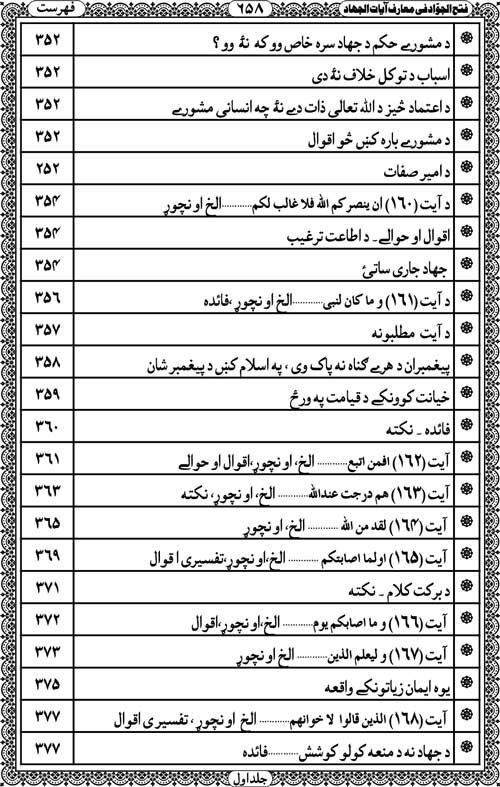 فتح الجوّاد فی معارف آیات الجهاد ۶۵۸ فهرست
د مشورے حکم د جهاد سره خاص وو که نۀ وو؟ ۳۵۲
اسباب د توکل خلاف نۀ دی ۳۵۲
د اعتماد څیز د الله تعالی ذات دے نۀ چه انسانی مشورے ۳۵۲
د مشورے باره کښ څو اقوال ۳۵۲
د امیر صفات ۲۵۲
د آیت (۱۶۰) ان ینصرکم الله فلا غالب لکم............الخ او نچوړ ۳۵۴
اقوال او حوالے۔ د اطاعت ترغیب ۳۵۴
جهاد جاری ساتئ ۳۵۴
د آیت (۱۶۱) و ما کان لنبی............الخ او نچوړ ،فائده ۳۵۶
د آیت مطلبونه ۳۵۷
پیغمبران د هرے ګناه نه پاک وی ، په اسلام کښ د پیغمبر شان ۳۵۸
خیانت کوونکے د قیامت په ورځ ۳۵۹
فائده ۔ نکته ۳۶۰
آیت (۱۶۲) افمن اتبع............ الخ، او نچوړ،اقوال او حوالے ۳۶۱
آیت (۱۶۳) هم درجت عندالله............ الخ، او نچوړ، نکته ۳۶۳
آیت (۱۶۴) لقد من الله ............ الخ، او نچوړ ۳۶۵
آیت (۱۶۵) اولما اصابتکم ............ الخ،او نچوړ،تفسیری اقوال ۳۶۹
د برکت کلام ۔ نکته ۳۷۱
آیت (۱۶۶) و ما اصابکم یوم............ الخ،او نچوړ،اقوال ۳۷۲
آیت (۱۶۷) و لیعلم الذین............ الخ او نچوړ ۳۷۳
یوه ایمان زیاتونکے واقعه ۳۷۵
آیت (۱۶۸) الذین قالوا لاخوانهم............ الخ او نچوړ ، تفسیری اقوال ۳۷۷
د جهاد نه د منعه کولو کوشش............فائده ۳۷۷
جلد اول